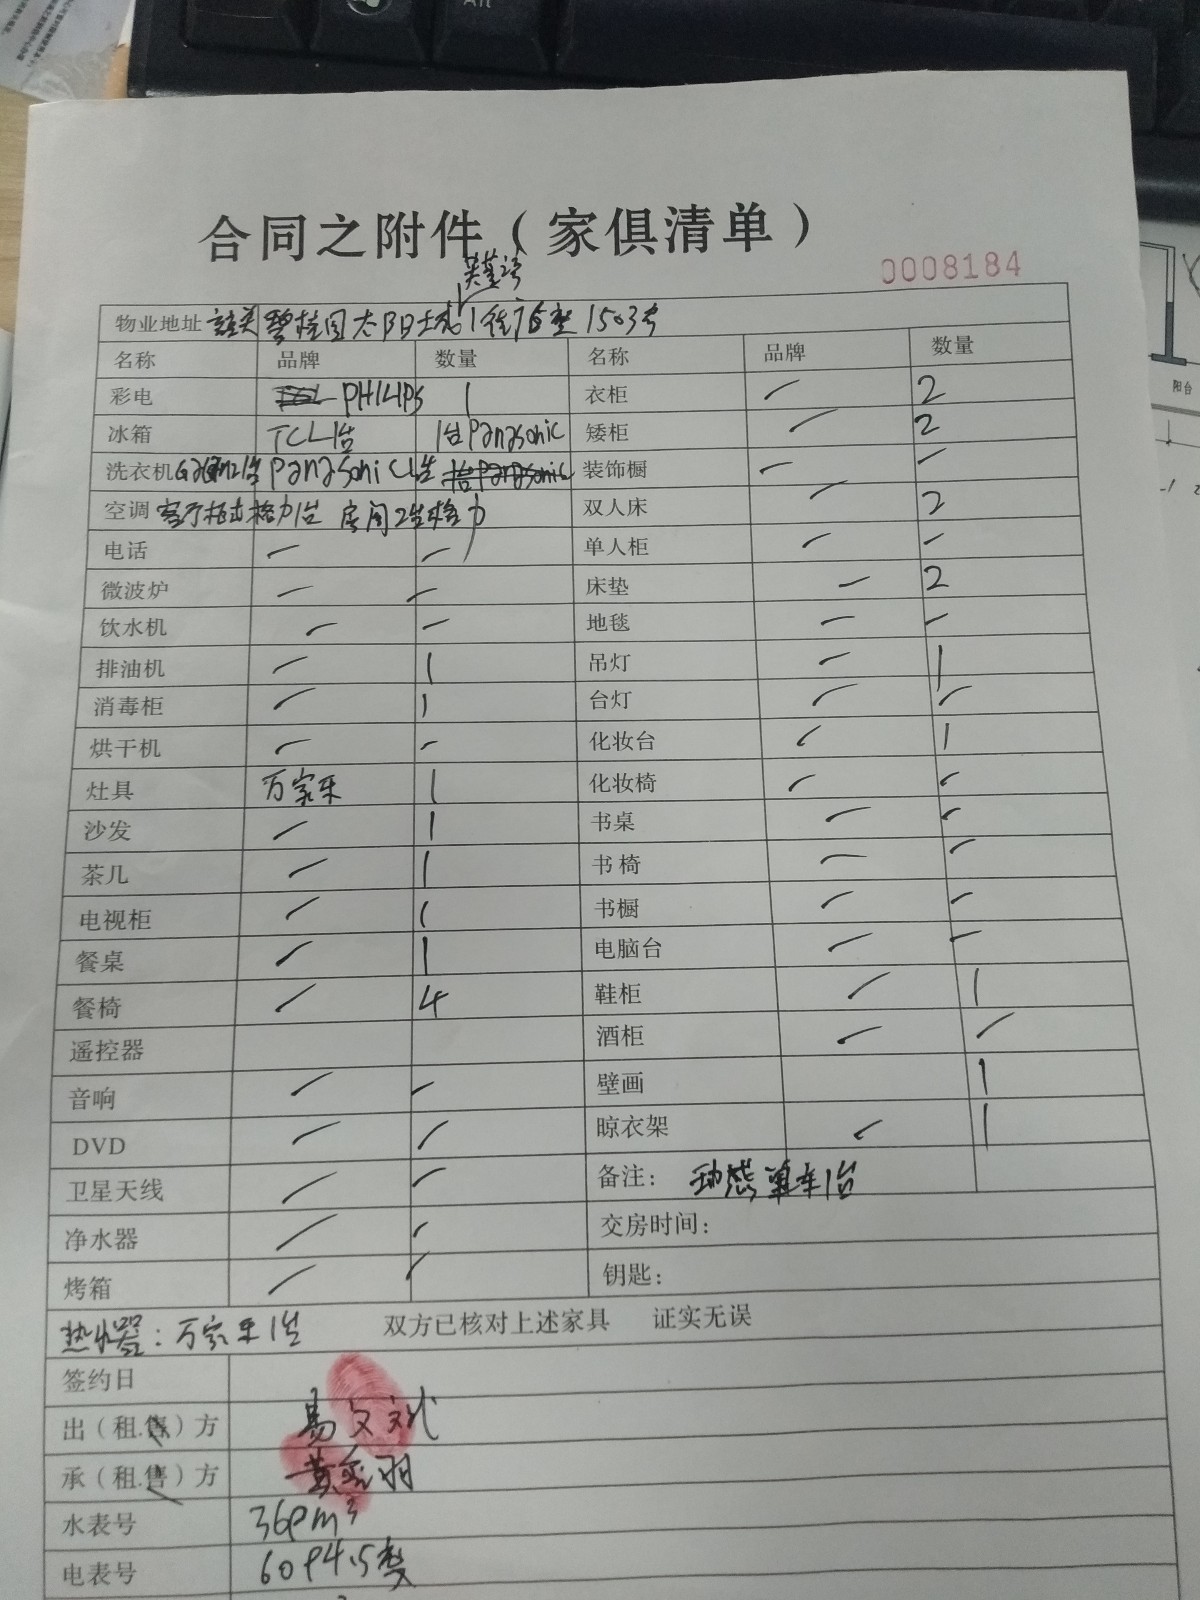 Alt
合同之附件（家俱清单）
0008184
物业地址 碧桂园太阳城 1街 1503号
名称 品牌 数量 名称 品牌 数量
彩电 PHILIPS 1 衣柜 2
冰箱 TCL1台 1台Panasonic 矮柜 2
洗衣机 Panasonic1台 装饰橱
空调 客厅柜式格力1台 房间2台格力 双人床 2
电话 单人柜
微波炉 床垫 2
饮水机 地毯
排油机 1 吊灯 1
消毒柜 1 台灯
烘干机 化妆台 1
灶具 万家乐 1 化妆椅
沙发 1 书桌
茶几 1 书椅
电视柜 1 书橱
餐桌 1 电脑台
餐椅 4 鞋柜 1
遥控器 酒柜
音响 壁画 1
DVD 晾衣架 1
卫星天线 备注：动感单车1台
净水器 交房时间：
烤箱 钥匙：
热水器：万家乐1台 双方已核对上述家具 证实无误
签约日
出（租.售）方 易文斌
承（租.售）方
水表号
电表号
阳台